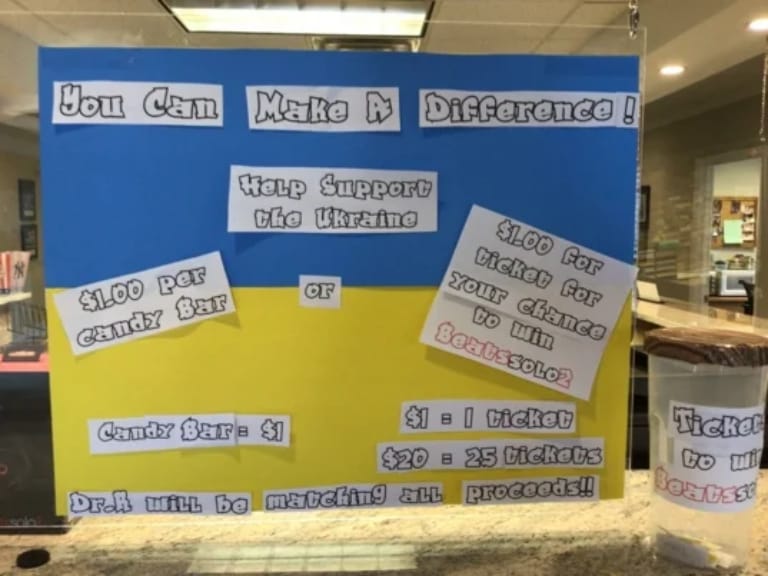 You Can Make A Difference!
Help Support
the Ukraine
$1.00 per
candy Bar
or
$1.00 for
ticket for
your chance
to win
Beatssolo2
Candy Bar = $1
$1 = 1 ticket
$20 = 25 tickets
Dr.A will be matching all proceeds!!
Ticket
to wi
Beatsso